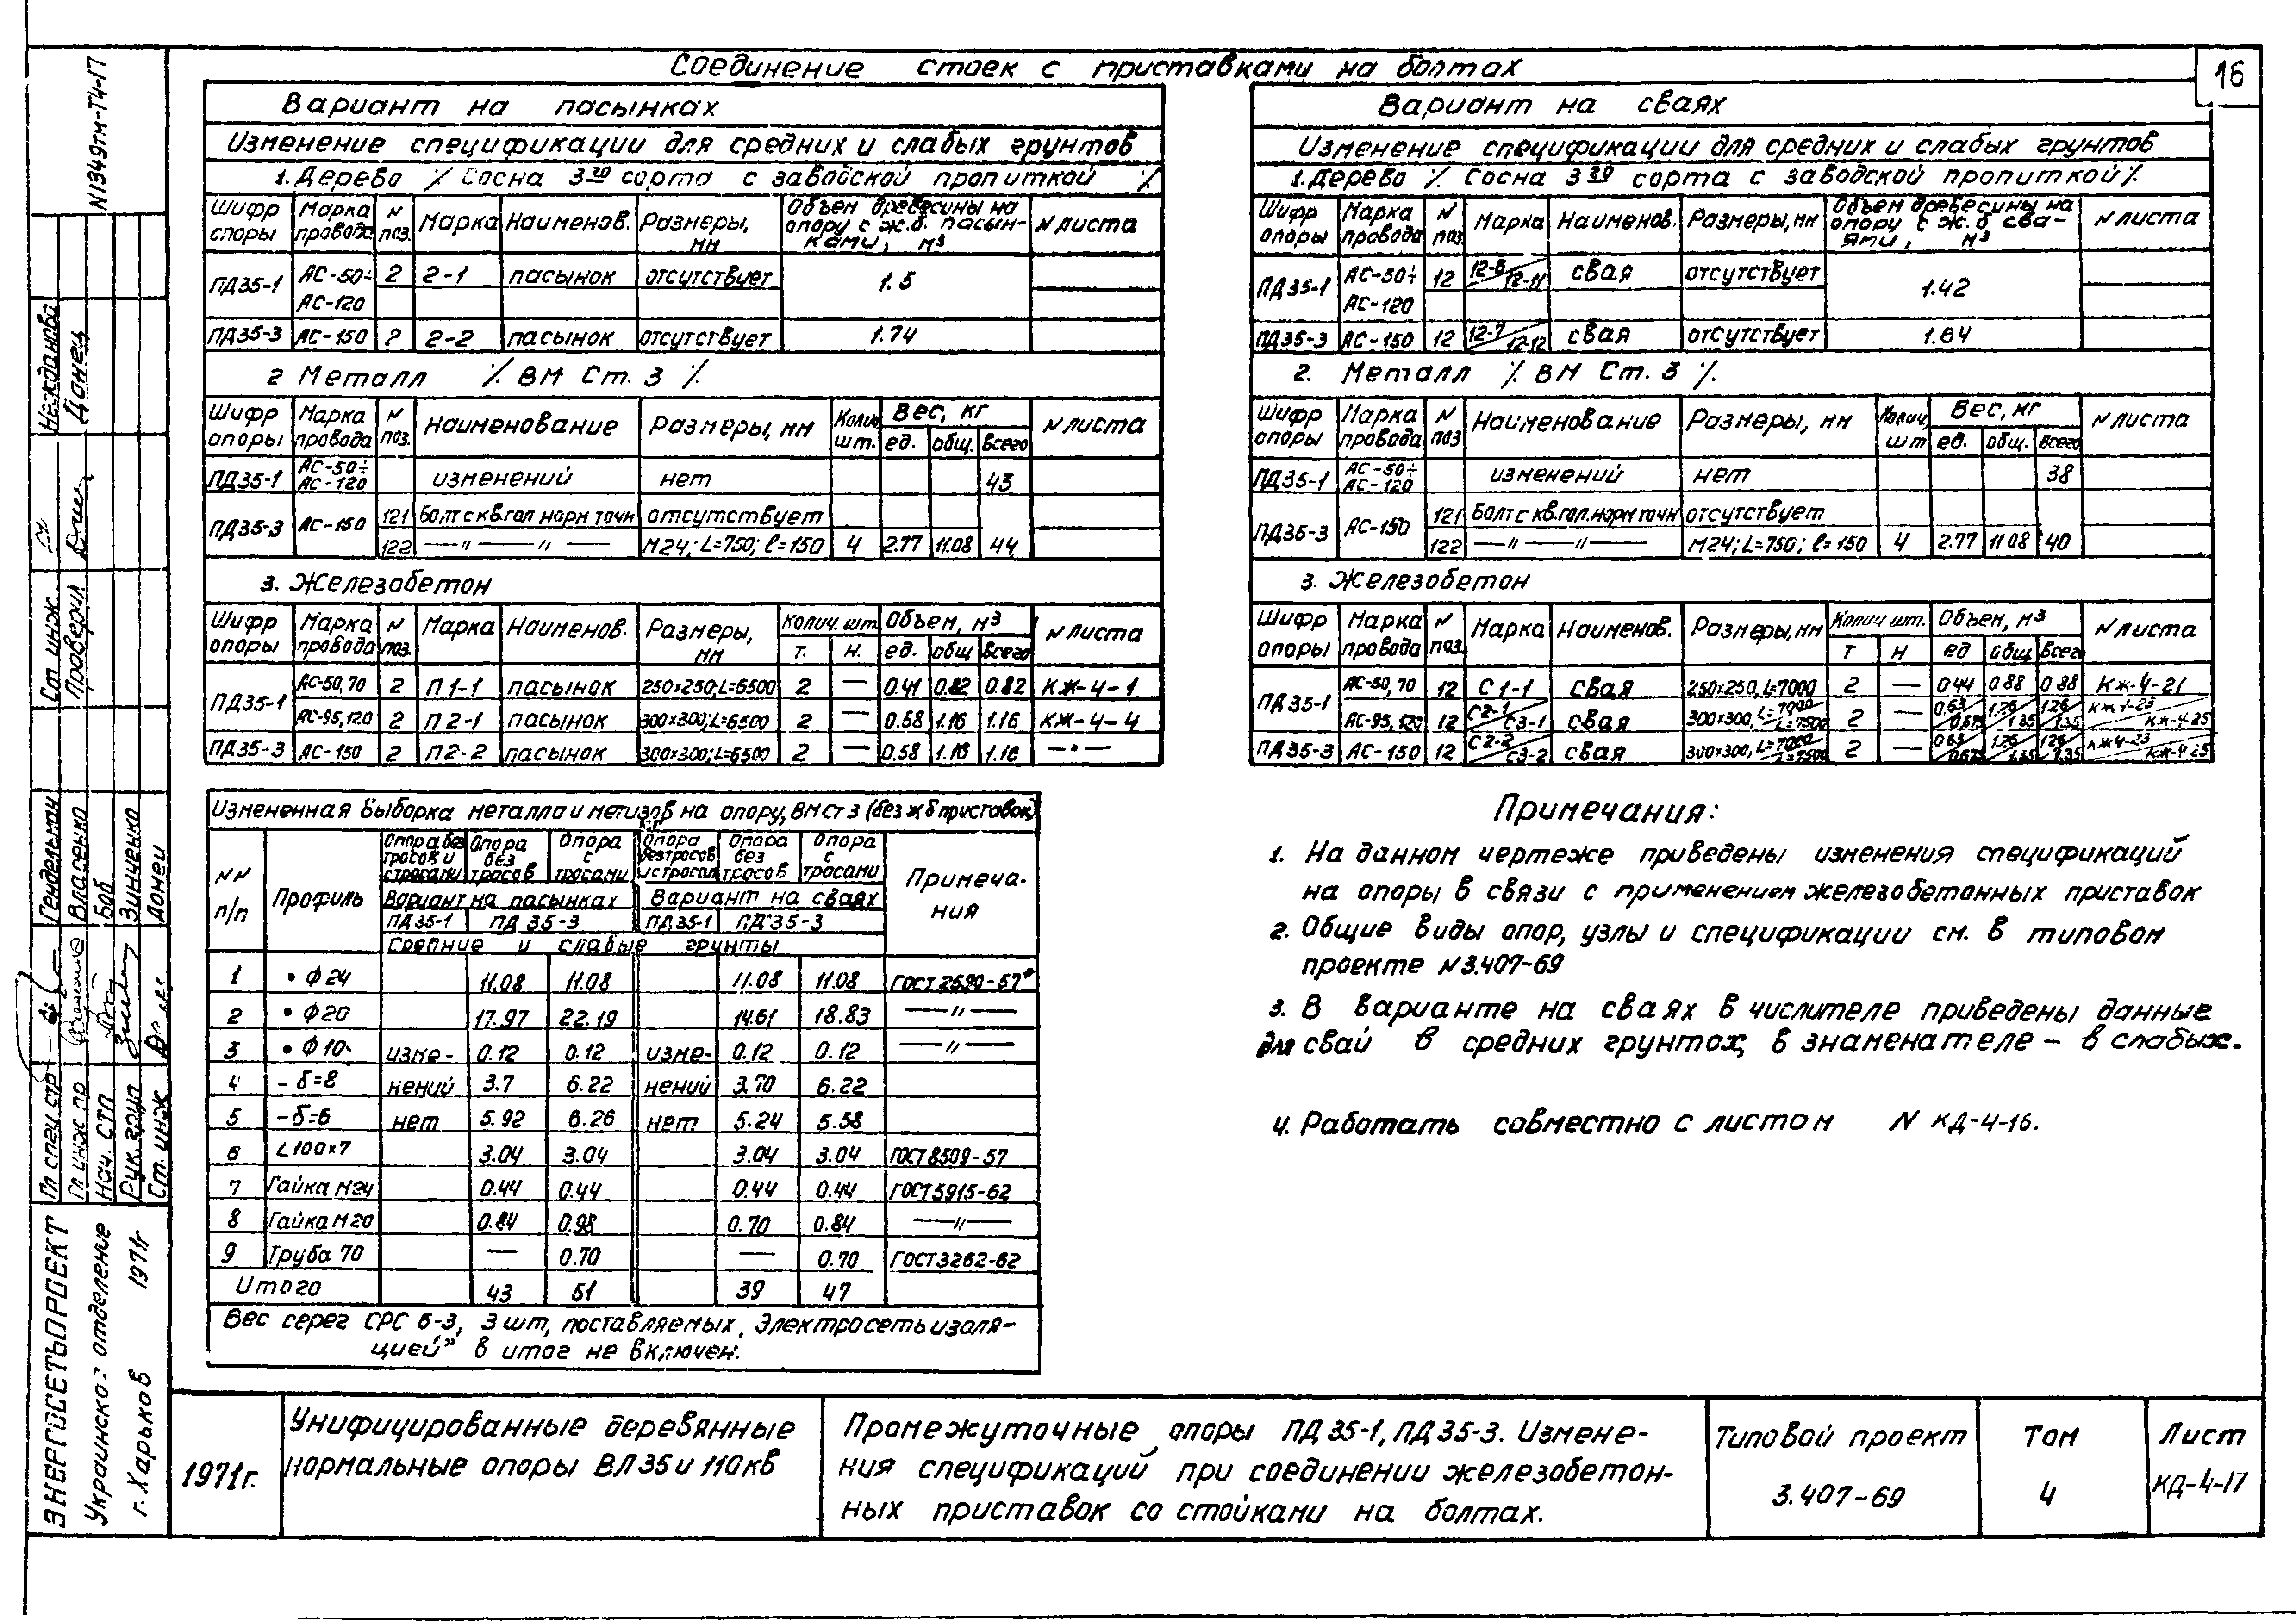 Соединение стоек с приставками на болтах
16
Вариант на пасынках
Изменение спецификации для средних и слабых грунтов
1. Дерево ٪ Сосна 3го сорта с заводской пропиткой ٪
Шифр опоры Марка провода N поз. Марка Наименов. Размеры, мм Объем древесины на опору с ж.б. пасынками, м³ N листа
ПД35-1 АС-50÷ АС-120 2 2-1 пасынок отсутствует 1.5
ПД35-3 АС-150 2 2-2 пасынок отсутствует 1.74
2 Металл ٪ ВМ Ст. 3 ٪
Шифр опоры Марка провода N поз. Наименование Размеры, мм Колич. шт. Вес, кг ед. общ. всего N листа
ПД35-1 АС-50÷ АС-120 изменений нет 43
ПД35-3 АС-150 121 Болт с кв.гол норм точн отсутствует
122 —〃—〃— М24; L=750; ℓ=150 4 2.77 11.08 44
3. Железобетон
Шифр опоры Марка провода N поз. Марка Наименов. Размеры, мм Колич. шт. т. н. Объем, м³ ед. общ всего N листа
ПД35-1 АС-50,70 2 П1-1 пасынок 250×250; L=6500 2 — 0.41 0.82 0.82 КЖ-4-1
АС-95,120 2 П2-1 пасынок 300×300; L=6500 2 — 0.58 1.16 1.16 КЖ-4-4
ПД35-3 АС-150 2 П2-2 пасынок 300×300; L=6500 2 — 0.58 1.16 1.16 —〃—
Вариант на сваях
Изменение спецификации для средних и слабых грунтов
1. Дерево ٪ Сосна 3го сорта с заводской пропиткой ٪
Шифр опоры Марка провода N поз. Марка Наименов. Размеры, мм Объем древесины на опору с ж.б. сваями, м³ N листа
ПД35-1 АС-50÷ АС-120 12 12-6/12-11 свая отсутствует 1.42
ПД35-3 АС-150 12 12-7/12-12 свая отсутствует 1.64
2. Металл ٪ ВМ Ст. 3 ٪
Шифр опоры Марка провода N поз Наименование Размеры, мм Колич. шт Вес, кг ед. общ. всего N листа
ПД35-1 АС-50÷ АС-120 изменений нет 38
ПД35-3 АС-150 121 Болт с кв.гол. норм точн отсутствует
122 —〃—〃— М24; L=750; ℓ=150 4 2.77 11.08 40
3. Железобетон
Шифр опоры Марка провода N поз. Марка Наименов. Размеры, мм Колич шт. т н Объем, м³ ед общ всего N листа
ПД35-1 АС-50,70 12 С1-1 свая 250×250, L=7000 2 — 0.44 0.88 0.88 КЖ-4-21
АС-95,120 12 С2-1/С3-1 свая 300×300, L=7000/L=7500 2 — 0.63/0.675 1.26/1.35 1.26/1.35 КЖ4-23/КЖ-4-25
ПД35-3 АС-150 12 С2-2/С3-2 свая 300×300, L=7000/L=7500 2 — 0.63/0.675 1.26/1.35 1.26/1.35 КЖ4-23/КЖ-4-25
Измененная выборка металла и метизов на опору, ВМСт3 (без ж б приставок)
NN п/п Профиль Опора без тросов и с тросами Опора без тросов Опора с тросами Опора без тросов и с тросами Опора без тросов Опора с тросами Примечания
Вариант на пасынках Вариант на сваях
ПД35-1 ПД35-3 ПД35-1 ПД35-3
Средние и слабые грунты
1 • ϕ24 11.08 11.08 11.08 11.08 ГОСТ 2590-57*
2 • ϕ20 17.97 22.19 14.61 18.83 —〃—
3 • ϕ10 изме- 0.12 0.12 изме- 0.12 0.12 —〃—
4 - δ=8 нений 3.7 6.22 нений 3.70 6.22
5 - δ=6 нет 5.92 6.26 нет 5.24 5.58
6 ∠100×7 3.04 3.04 3.04 3.04 ГОСТ8509-57
7 Гайка М24 0.44 0.44 0.44 0.44 ГОСТ5915-62
8 Гайка М20 0.84 0.98 0.70 0.84 —〃—
9 Труба 70 — 0.70 — 0.70 ГОСТ3262-62
Итого 43 51 39 47
Вес серег СРС 6-3, 3 шт, поставляемых „Электросетьизоля-
цией” в итог не включен.
Примечания:
1. На данном чертеже приведены изменения спецификаций
на опоры в связи с применением железобетонных приставок
2. Общие виды опор, узлы и спецификации см. в типовом
проекте N3.407-69
3. В варианте на сваях в числителе приведены данные
для свай в средних грунтах, в знаменателе – в слабых.
4. Работать совместно с листом N КД-4-16.
1971г.
Унифицированные деревянные
нормальные опоры ВЛ 35 и 110кв
Промежуточные опоры ПД35-1, ПД35-3. Измене-
ния спецификаций при соединении железобетон-
ных приставок со стойками на болтах.
Типовой проект
3.407-69
Том
4
Лист
КД-4-17
N1349тм-Т4-17
Ст. инж. Нежданова
Проверил Донец
Гл спец стр Гендельман
Гл. инж. пр Власенко
Нач. СТП Боб
Рук. груп Зинченко
Ст. инж Донец
ЭНЕРГОСЕТЬПРОЕКТ
Украинское отделение
г. Харьков 1971г